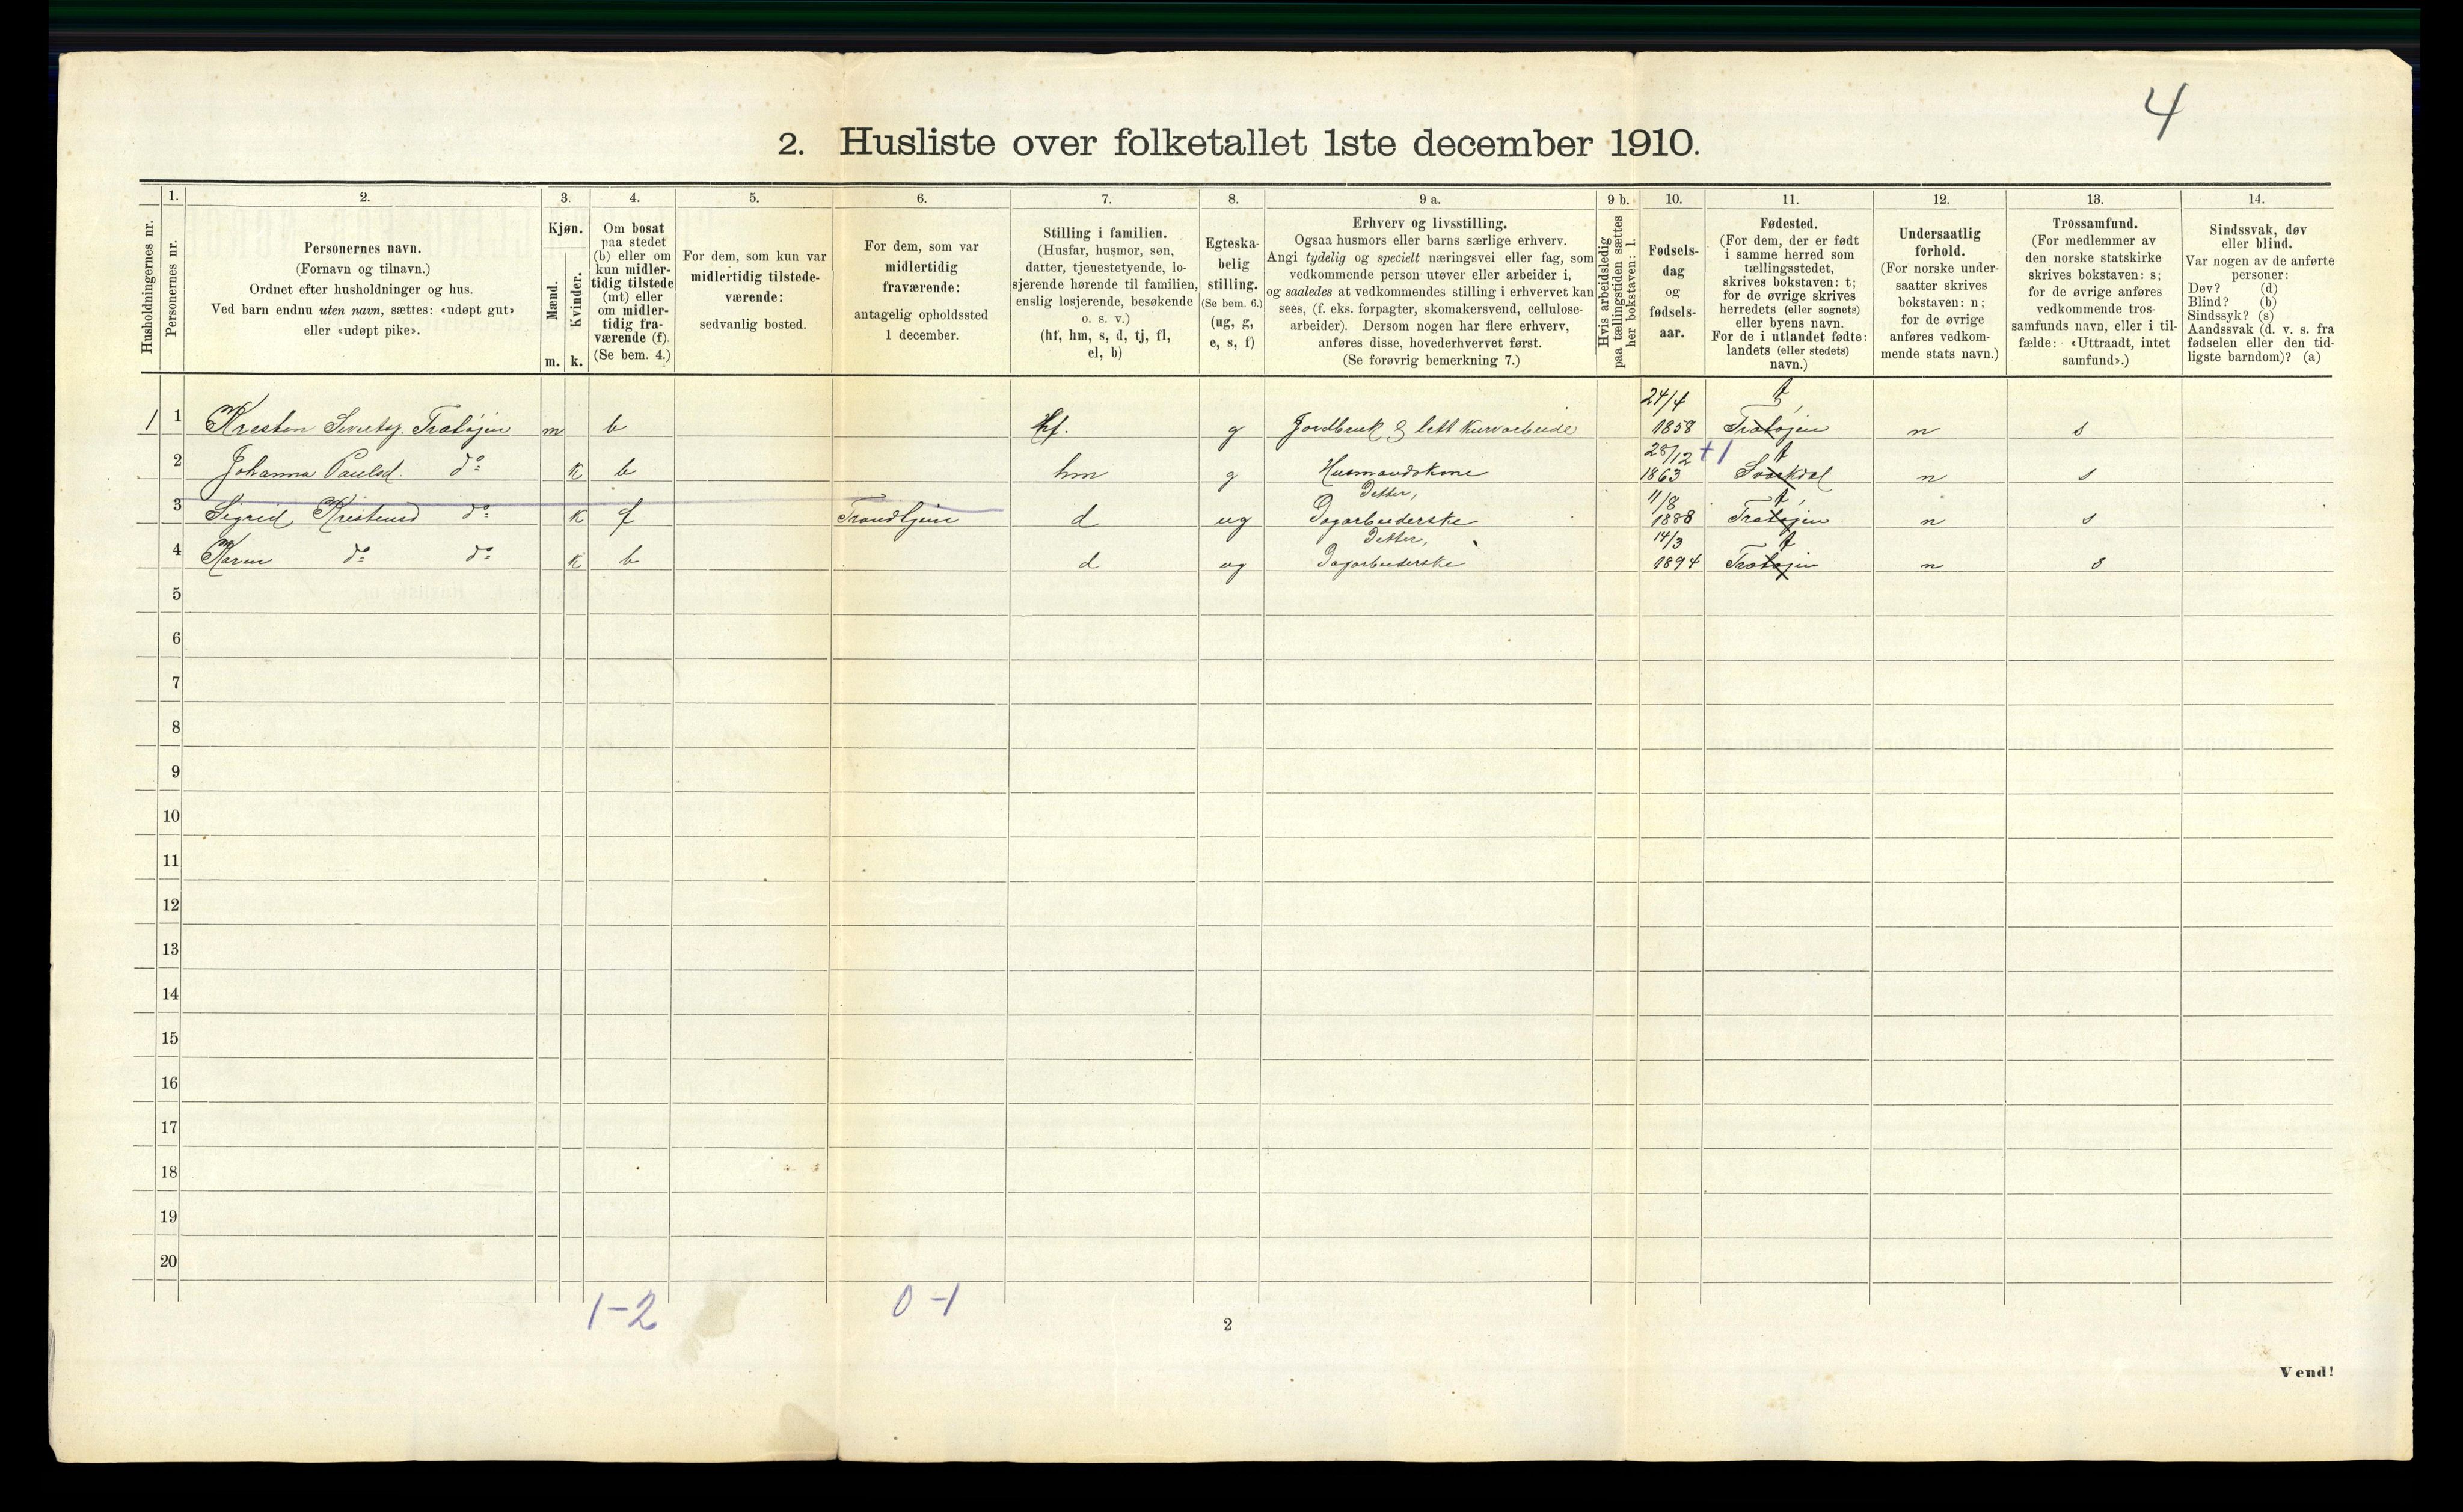 4
2. Husliste over folketallet 1ste december 1910.
Husholdningernes nr.
1.
Personernes nr.
2.
Personernes navn.
(Fornavn og tilnavn.)
Ordnet efter husholdninger og hus.
Ved barn endnu uten navn, sættes: «udøpt gut»
eller «udøpt pike».
3.
Kjøn.
Mænd.
Kvinder.
m. k.
4.
Om bosat
paa stedet
(b) eller om
kun midler-
tidig tilstede
(mt) eller
om midler-
tidig fra-
værende (f).
(Se bem. 4.)
5.
For dem, som kun var
midlertidig tilstede-
værende:
sedvanlig bosted.
6.
For dem, som var
midlertidig
fraværende:
antagelig opholdssted
1 december.
7.
Stilling i familien.
(Husfar, husmor, søn,
datter, tjenestetyende, lo-
sjerende hørende til familien,
enslig losjerende, besøkende
o. s. v.)
(hf, hm, s, d, tj, fl,
el, b)
8.
Egteska-
belig
stilling.
(Se bem. 6.)
(ug, g,
e, s, f)
9 a.
Erhverv og livsstilling.
Ogsaa husmors eller barns særlige erhverv.
Angi tydelig og specielt næringsvei eller fag, som
vedkommende person utøver eller arbeider i,
og saaledes at vedkommendes stilling i erhvervet kan
sees, (f. eks. forpagter, skomakersvend, cellulose-
arbeider). Dersom nogen har flere erhverv,
anføres disse, hovederhvervet først.
(Se forøvrig bemerkning 7.)
9 b.
Hvis arbeidsledig
paa tællingstiden sættes
her bokstaven: l.
10.
Fødsels-
dag
og
fødsels-
aar.
11.
Fødested.
(For dem, der er født
i samme herred som
tællingsstedet,
skrives bokstaven: t;
for de øvrige skrives
herredets (eller sognets)
eller byens navn.
For de i utlandet fødte:
landets (eller stedets)
navn.)
12.
Undersaatlig
forhold.
(For norske under-
saatter skrives
bokstaven: n;
for de øvrige
anføres vedkom-
mende stats navn.)
13.
Trossamfund.
(For medlemmer av
den norske statskirke
skrives bokstaven: s;
for de øvrige anføres
vedkommende tros-
samfunds navn, eller i til-
fælde: «Uttraadt, intet
samfund».)
14.
Sindssvak, døv
eller blind.
Var nogen av de anførte
personer:
Døv? (d)
Blind? (b)
Sindssyk? (s)
Aandssvak (d. v. s. fra
fødselen eller den tid-
ligste barndom)? (a)
24/4 t
1 1 Kresten Sivertsz. Trøtøjen m b Hf. g Jordbruk & lett kurvarbeide 1858 Trøtøjen n s
28/12 +1 t
2 Johanna Paulsd. do k b hm g Husmandskone 1863 n s
Detter, 11/8 t
3 Sigrid Krestensd do k f Trondhjem d ug Dagarbeiderske 1888 Trøtøjen n s
Detter, 14/3 t
4 Karen do do k b d ug Dagarbeiderske 1894 Trøtøjen n s
5
6
7
8
9
10
11
12
13
14
15
16
17
18
19
20
1-2 0-1
2
Vend!